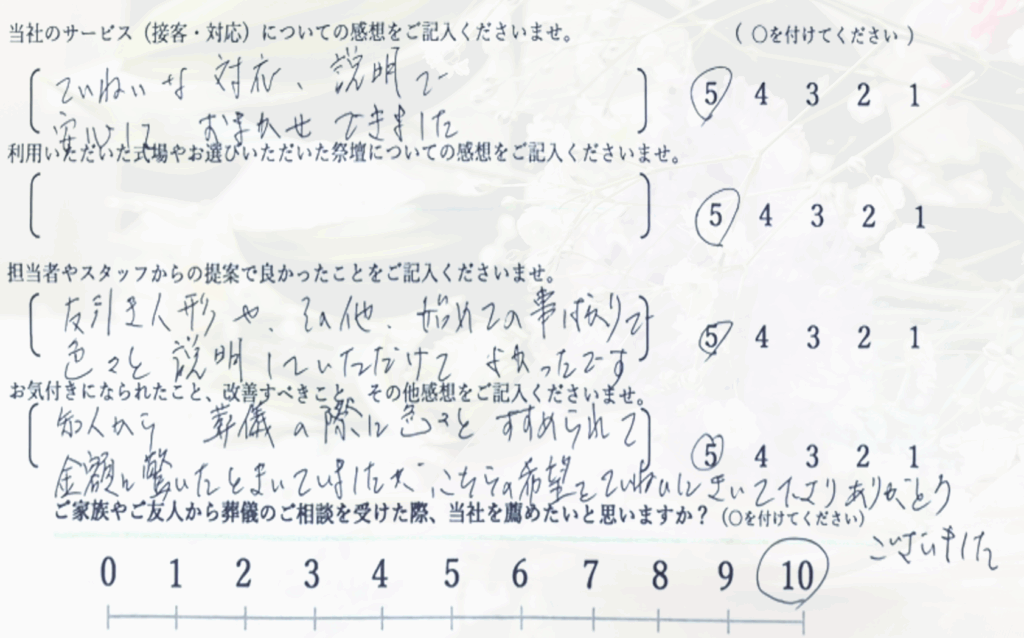 当社のサービス（接客・対応）についての感想をご記入くださいませ。 （ ○を付けてください ）
ていねいな 対応、説明で 5 4 3 2 1
安心して おまかせできました
利用いただいた式場やお選びいただいた祭壇についての感想をご記入くださいませ。
5 4 3 2 1
担当者やスタッフからの提案で良かったことをご記入くださいませ。
友引き人形や、その他、始めての事ばかりで 5 4 3 2 1
色々と説明していただけて よかったです
お気付きになられたこと、改善すべきこと、その他感想をご記入くださいませ。
知人から 葬儀の際に色々とすすめられて 5 4 3 2 1
金額に驚いたときいていましたが こちらの希望をていねいにきいて下さりありがとう
ございました
ご家族やご友人から葬儀のご相談を受けた際、当社を薦めたいと思いますか？（○を付けてください）
0 1 2 3 4 5 6 7 8 9 10